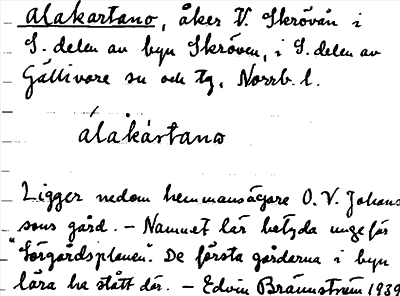 alakartano, åker V. Skröven i
S. delen av byn Skröven, i S. delen av
Gällivare sn och tg, Norrb. l.
álakàrtano
Ligger nedom hemmansägare O. V. Johans
sons gård. – Namnet lär betyda ungefär
"Sörgårdsplanen". De första gårdarna i byn
lära ha stått där. – Edvin Brännström 1939